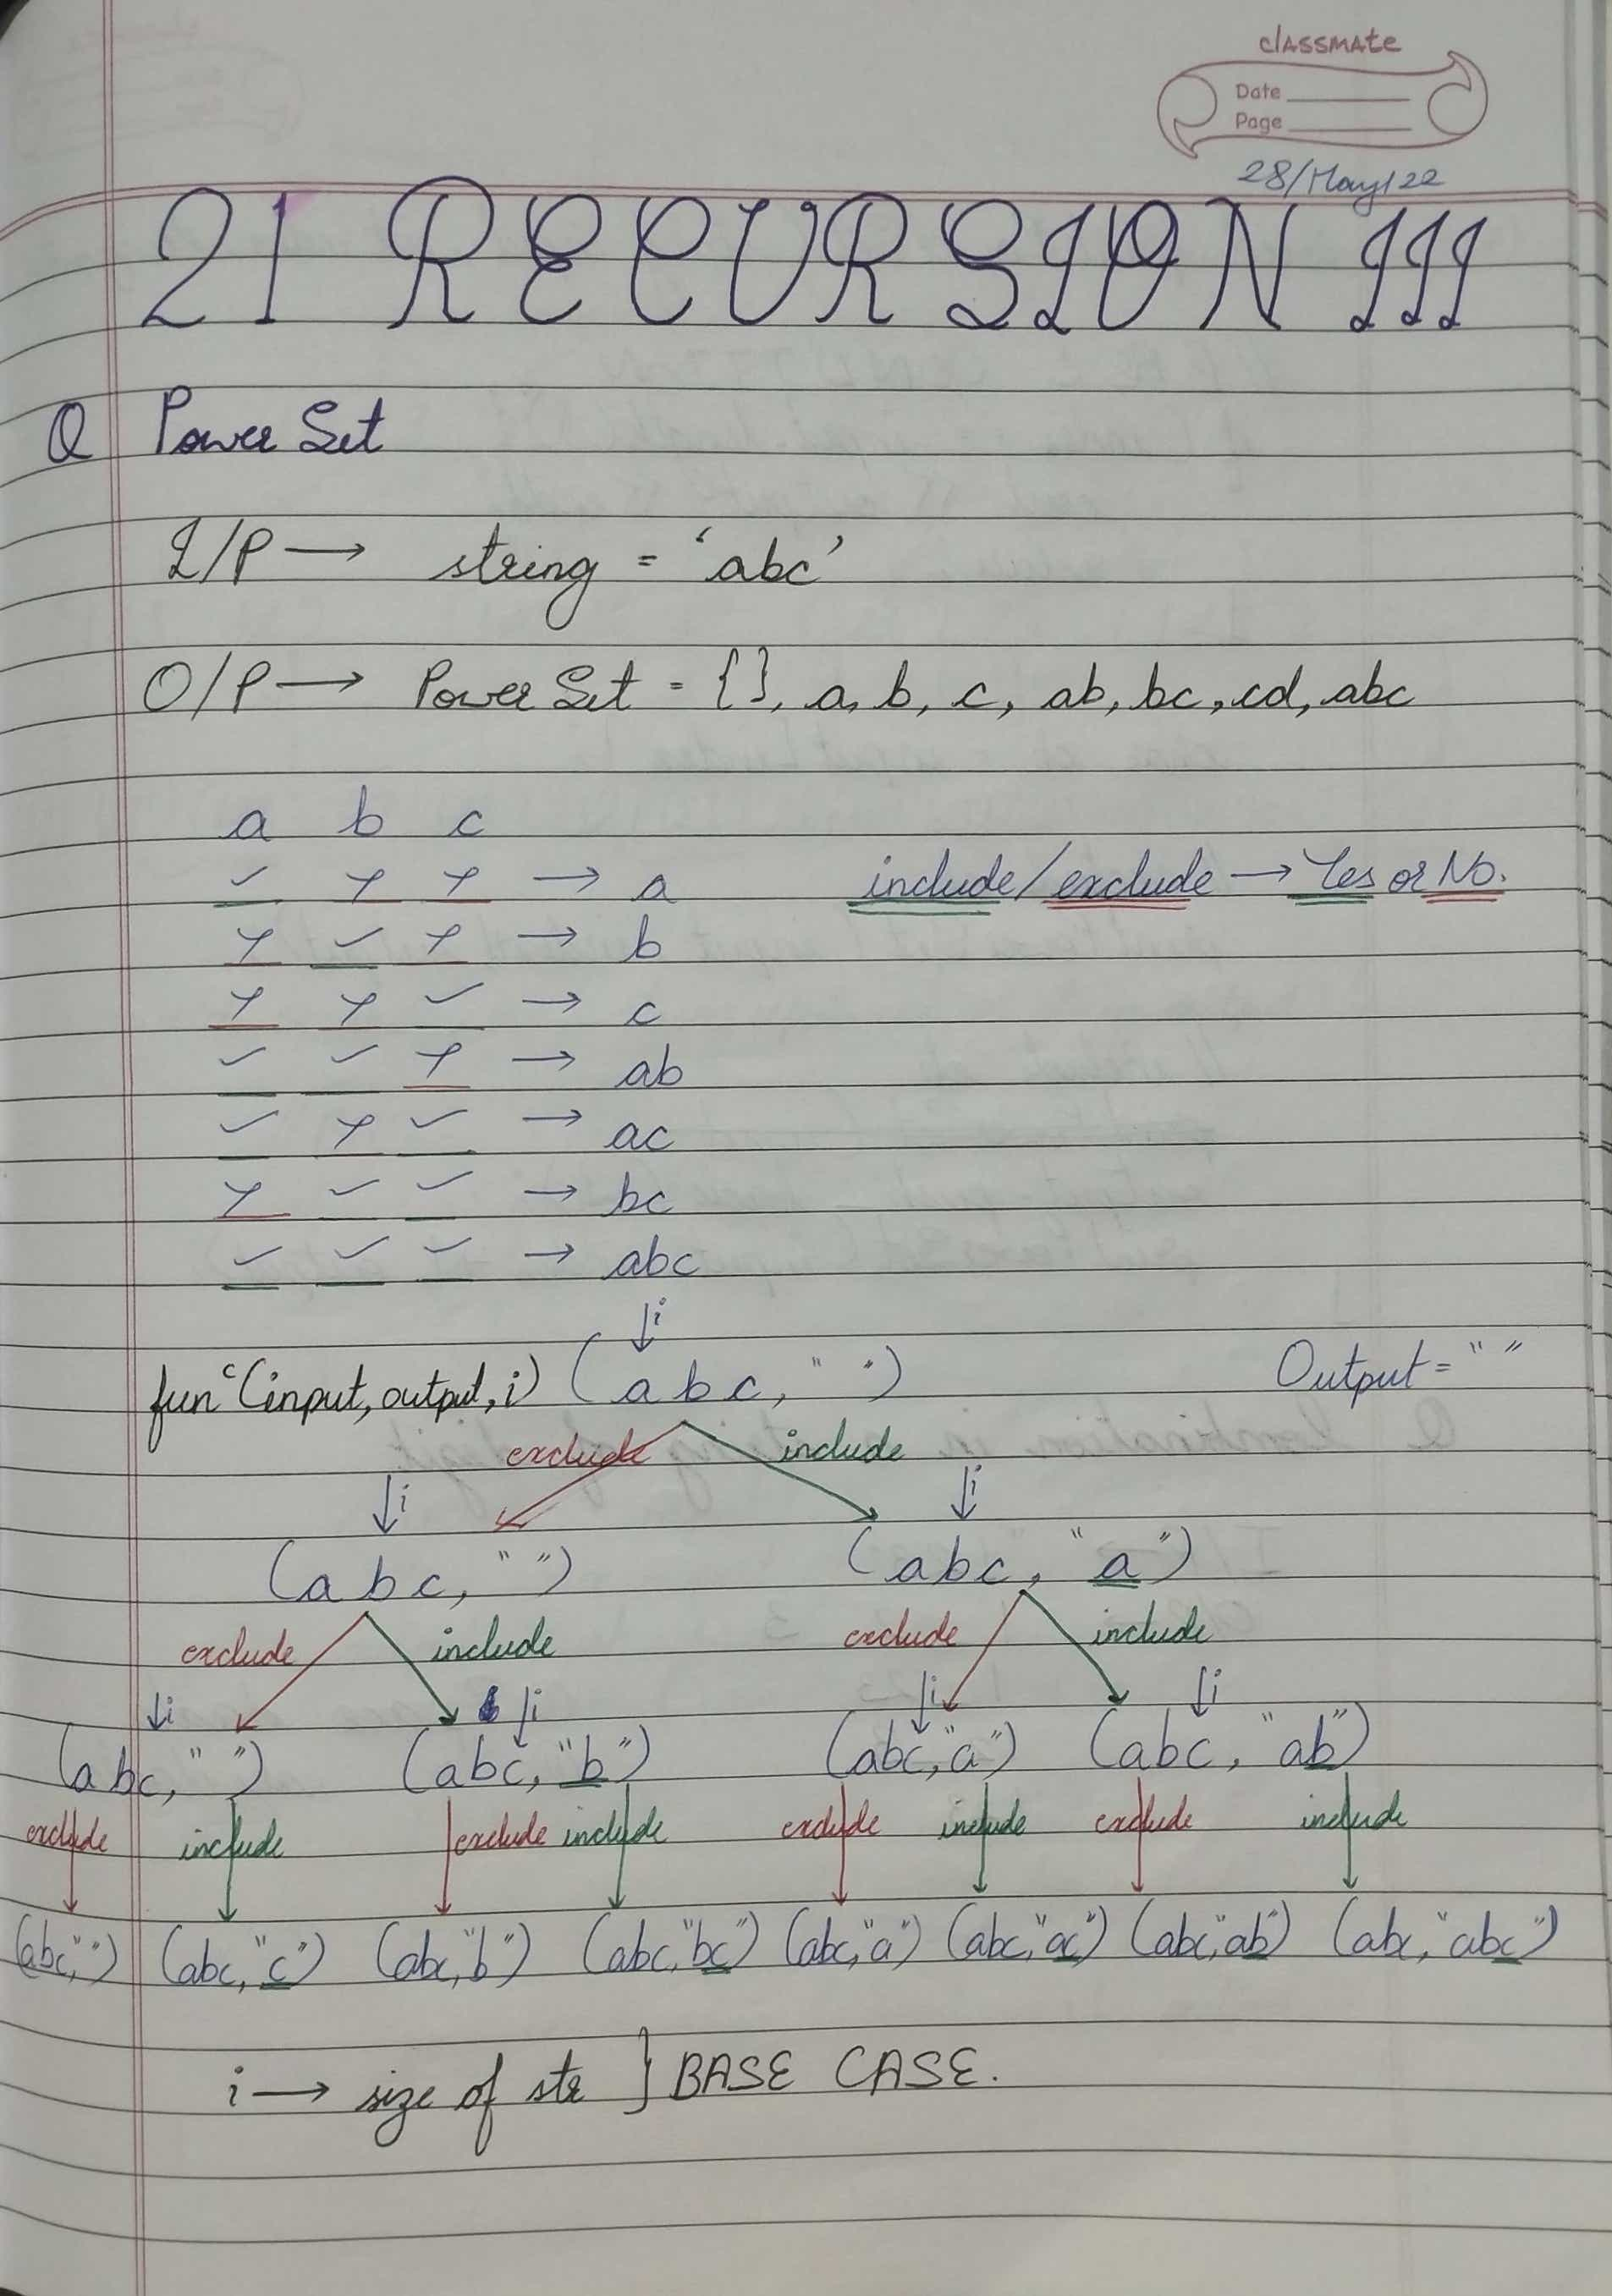 classmate
Date
Page
28/May/22
21 RECURSION III
Q Power Set
I/P → string = 'abc'
O/P → Power Set = { }, a, b, c, ab, bc, cd, abc
a b c
✓ × × → a include/exclude → Yes or No.
× ✓ × → b
× × ✓ → c
✓ ✓ × → ab
✓ × ✓ → ac
× ✓ ✓ → bc
✓ ✓ ✓ → abc
↓i
funᶜ(input, output, i) (abc, " ") Output = " "
exclude include
↓i ↓i
(abc, " ") (abc, "a")
exclude include exclude include
↓i ↓i ↓i ↓i
(abc, " ") (abc, "b") (abc, "a") (abc, "ab")
exclude include exclude include exclude include exclude include
(abc, " ") (abc, "c") (abc, "b") (abc, "bc") (abc, "a") (abc, "ac") (abc, "ab") (abc, "abc")
i → size of str } BASE CASE.